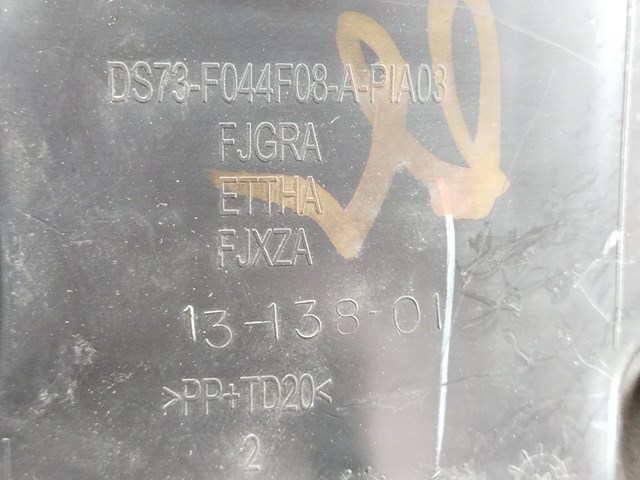 DS73-F044F08-A-PIA03
FJGRA
ETTHA
FJXZA
13-138-01
>PP+TD20<
2